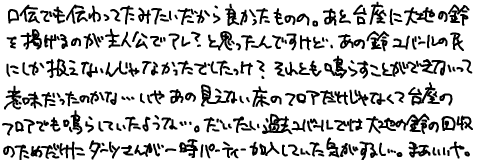 口伝でも伝わってたみたいだから良かたものの。あと台座に大地の鈴
を掲げるのが主人公でアレ?と思ったんですけど、あの鈴ユバールの民
にしか扱えないんじゃなかったでしたっけ?それとも鳴らすことができないって
意味だったのかな…いや あの見えない床のフロアだけじゃなくて台座の
フロアでも鳴らしていたような…。だいたい過去ユバールでは大地の鈴の回収
のためだけにダーツさんが一時パーティー加入していた気がするし…。まあいいや。